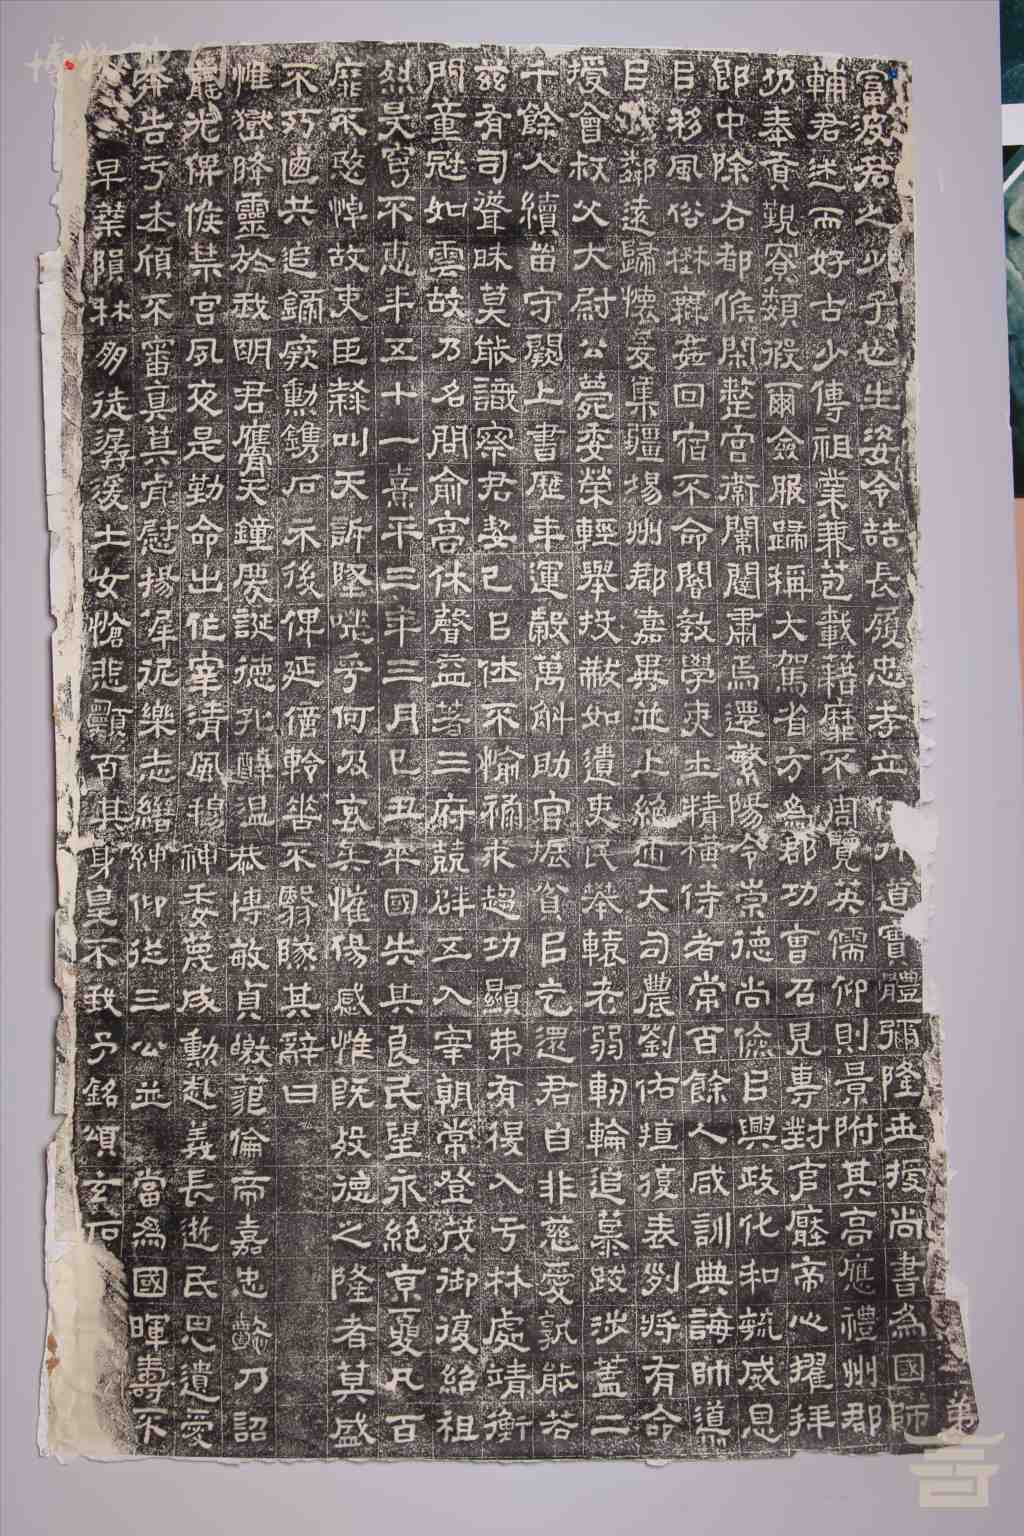 富波君之少子也生姿令喆長履忠孝立行道實體彌隆並授尚書為國師
輔君述而好古少傳祖業兼苞載藉靡不周覽英儒仰則景附其高應禮州郡
仍奉貢覲寮類假爾僉服歸稱大駕省方為郡功曹召見專對帝心擢拜
郎中除右都候閑整宮衛闈闥肅焉遷繁陽令崇德尚儉㠯興政化和毓威恩
㠯移風俗姦回宿不命閽敦學吏士精橫侍者常百餘人咸訓典誨帥導
㠯鄰遠歸懷爰集疆埸州郡嘉異並上絕迹大司農劉佑復表列將有命
授會叔父大尉公薨委榮輕舉投黻如遺吏民攀轅老弱軔輪追慕跋涉蓋二
千餘人續留守闕上書歷年運穀萬斛助官振貧㠯乞還君自非慈愛孰能若
茲有司聳昧莫能識察君絜己㠯休不愉禰求趨功顯弗有得入于林處靖衡
門童冠如雲故乃名問俞高休聲益著三府競辟五入宰朝常登茂御復紹祖
烈昊穹不惠年五十一熹平三年三月己丑卒國失其良民望永絕京夏凡百
靡不愍悼故吏臣隸叫天訴墜嗟乎何及玄矣惟傷感惟既歿德之隆者莫盛
不朽迺共追錄厥勳鐫石示後俾延億軨芸不翳隊其辭曰
惟嶽降靈於我明君膺天鐘慶誕德孔醇溫恭博敏貞皦倫帝嘉忠懿乃詔
龍光俾侯禁宮夙夜是勤命出作宰清風穆神委蔑成勳赴義長逝民思遺愛
奔告于丕不審真其慰揚樂志縉紳仰從三公並當為國暉壽不
早葉隕林朋徒潺湲士女愴悲顯百其身皇不我予銘頌玄石